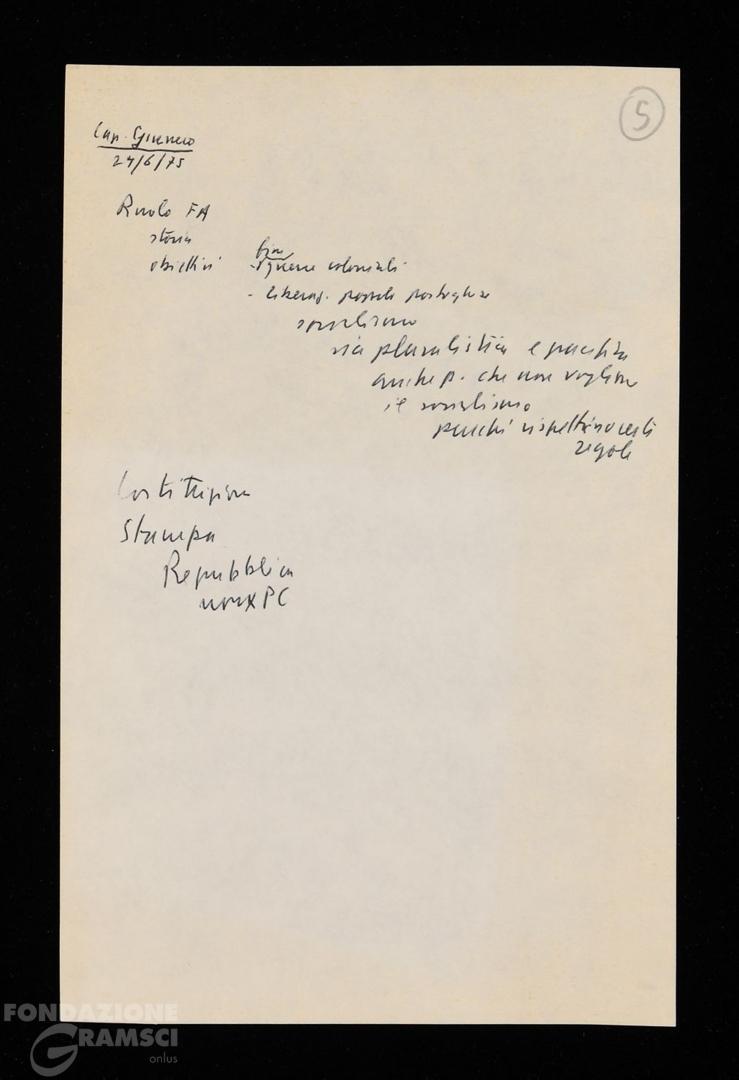 5
Cap. Guerreiro
24/6/75
Ruolo FA
storia
obiettivi
fine
- guerre coloniali
- liberaz. popolo portoghese
socialismo
via pluralistica e pacifica
anche p. che non vogliono
il socialismo
purché rispettino certe
regole
Costituzione
Stampa
Repubblica
non x PC
FONDAZIONE
GRAMSCI
onlus